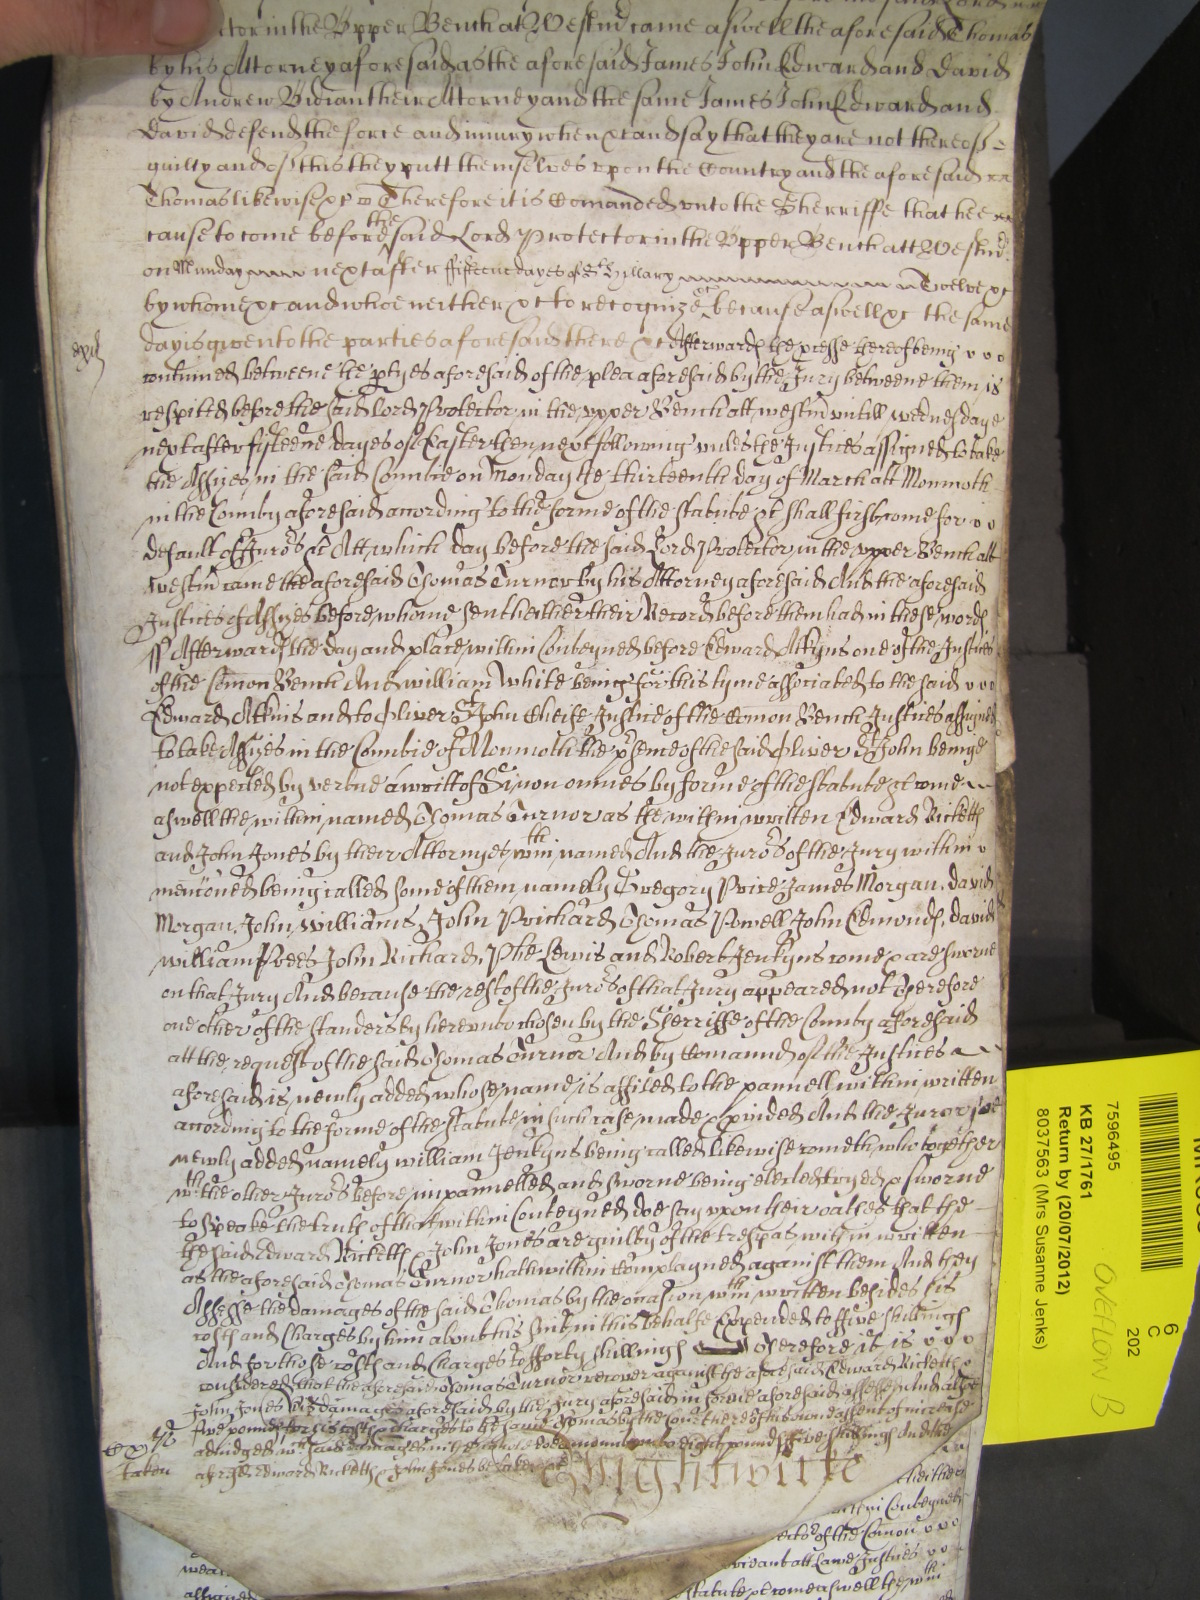 in the Upper Bench at Westm came aswell the aforesaid Thomas
by his Attorney aforesaid as the aforesaid James John Edward and David
by Andrew their Attorney and the same James John Edward and
David defend the force and injury when &c and say that they are not thereof
guilty and of this they putt themselves upon the Country and the aforesaid
Thomas likewise &c Therefore it is Comanded unto the Sherriffe that hee
cause to come before the said Lord Protector in the Upper Bench att Westm
on Munday next after fifteene dayes of St Hillary Twelve &c
by whome &c and whoe neither &c to recognize &c because aswell &c the same
day is given to the parties aforesaid there &c Afterwards the processe thereof being
continued betweene the ptyes aforesaid of the plea aforesaid by the Jury betweene them is
respited before the said Lord Protector in the upper Bench att westm untill wednesdaye
next after fifteene dayes of Easter then next following unles the Justices assigned to take
the Assizes in the said Countie on Monday the thirteenth day of March att Monmoth
in the County aforesaid according to the forme of the statute &c shall first come for
default of Juro's &c Att which day before the said Lord Protector in the upper Bench att
westm came the aforesaid Thomas Turnor by his Attorney aforesaid And the aforesaid
Justices of Assizes before whome &c sent hither their Record before them had in these words
ss Afterwards the day and place within Conteyned before Edward Atkyns one of the Justices
of the Comon Bench And william White being for this tyme associated to the said
Edward Atkins and to Oliver St John Cheife Justice of the Comon Bench Justices assigned
to take Assizes in the Countie of Monmoth the psence of the said Oliver St John being
not expected by vertue a writt of Si non omnes by forme of the statute &c come
aswell the within named Thomas Turnor as the within written Edward Ricketts
and John Jones by their Attornyes within named And the Juro's of the Jury within
mencioned being called some of them namely Gregory Price James Morgan, David
Morgan, John Williams, John Prichard Thomas Powell John Edmonds, David
william Rees John Richard, Phe Lewis and Robert Jenkyns come & are sworne
on that Jury And because the rest of the Juro's of that Jury appeared not Therefore
one other of the standers by hereunto chosen by the Sherriffe of the County aforesaid
att the request of the said Thomas Turnor And by Comannd of the Justices
aforesaid is newly added whose name is affiled to the pannell within written
according to the forme of the statute in such case made & pvided And the Juror soe
newly added namely william Jenkyns being called likewise cometh who together
with the other Juro's before impannelled and sworne being elected tryed & sworne
to speake the truth of that within Conteyned doe say upon their oathes that the
the said Edward Ricketts & John Jones are guilty of the trespas within written
as the aforesaid Thomas Turnor hath within Complayned against them And they
Assesse the damages of the said Thomas by the occasion within written besides his
costs and Charges by him about his suit in this behalfe Expended to ffive shillings
And for those costs and Charges to fforty shillings Therefore it is
considered that the aforesaid Thomas Turnor recover against the aforesaid Edward Ricketts &
John Jones his damages aforesaid by the Jury aforesaid in forme aforesaid assessed And alsoe
five pounds for his costs & charges to the same Thomas by the Court here of his owne assent of increase
adjudged wch said damages in the whole doe amount unto eight pounds ffive shillings And the
aforesd Edward Ricketts & John Jones be taken &c
taken
Wightwicke
7596495
KB 27/1761
Return by (20/07/2012)
8037563 (Mrs Susanne Jenks)
OVERFLOW B
6
C
202